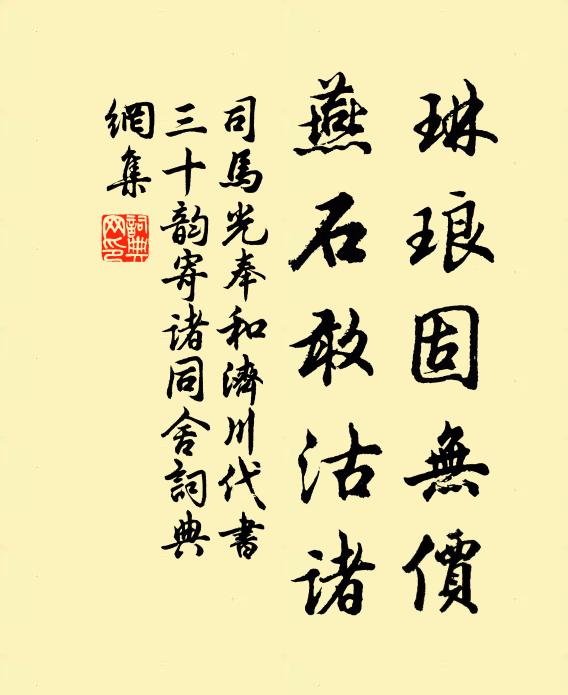 琳琅固無價
燕石敢沽诸
司馬光奉和濟川代書
三十韵寄诸同舍詞典
網集
詞典
网印